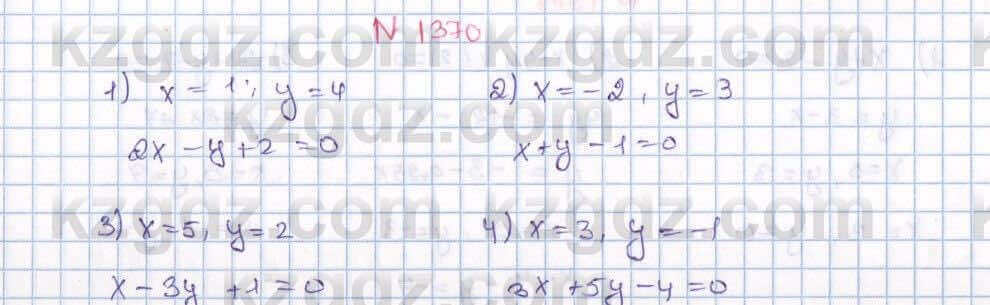 N 1370
1) x = 1; y = 4
2x - y + 2 = 0
2) x = -2, y = 3
x + y - 1 = 0
3) x = 5, y = 2
x - 3y + 1 = 0
4) x = 3, y = -1
3x + 5y - 4 = 0
kzgdz.com
kzgdz.com
kzgdz.com
kzgdz.com